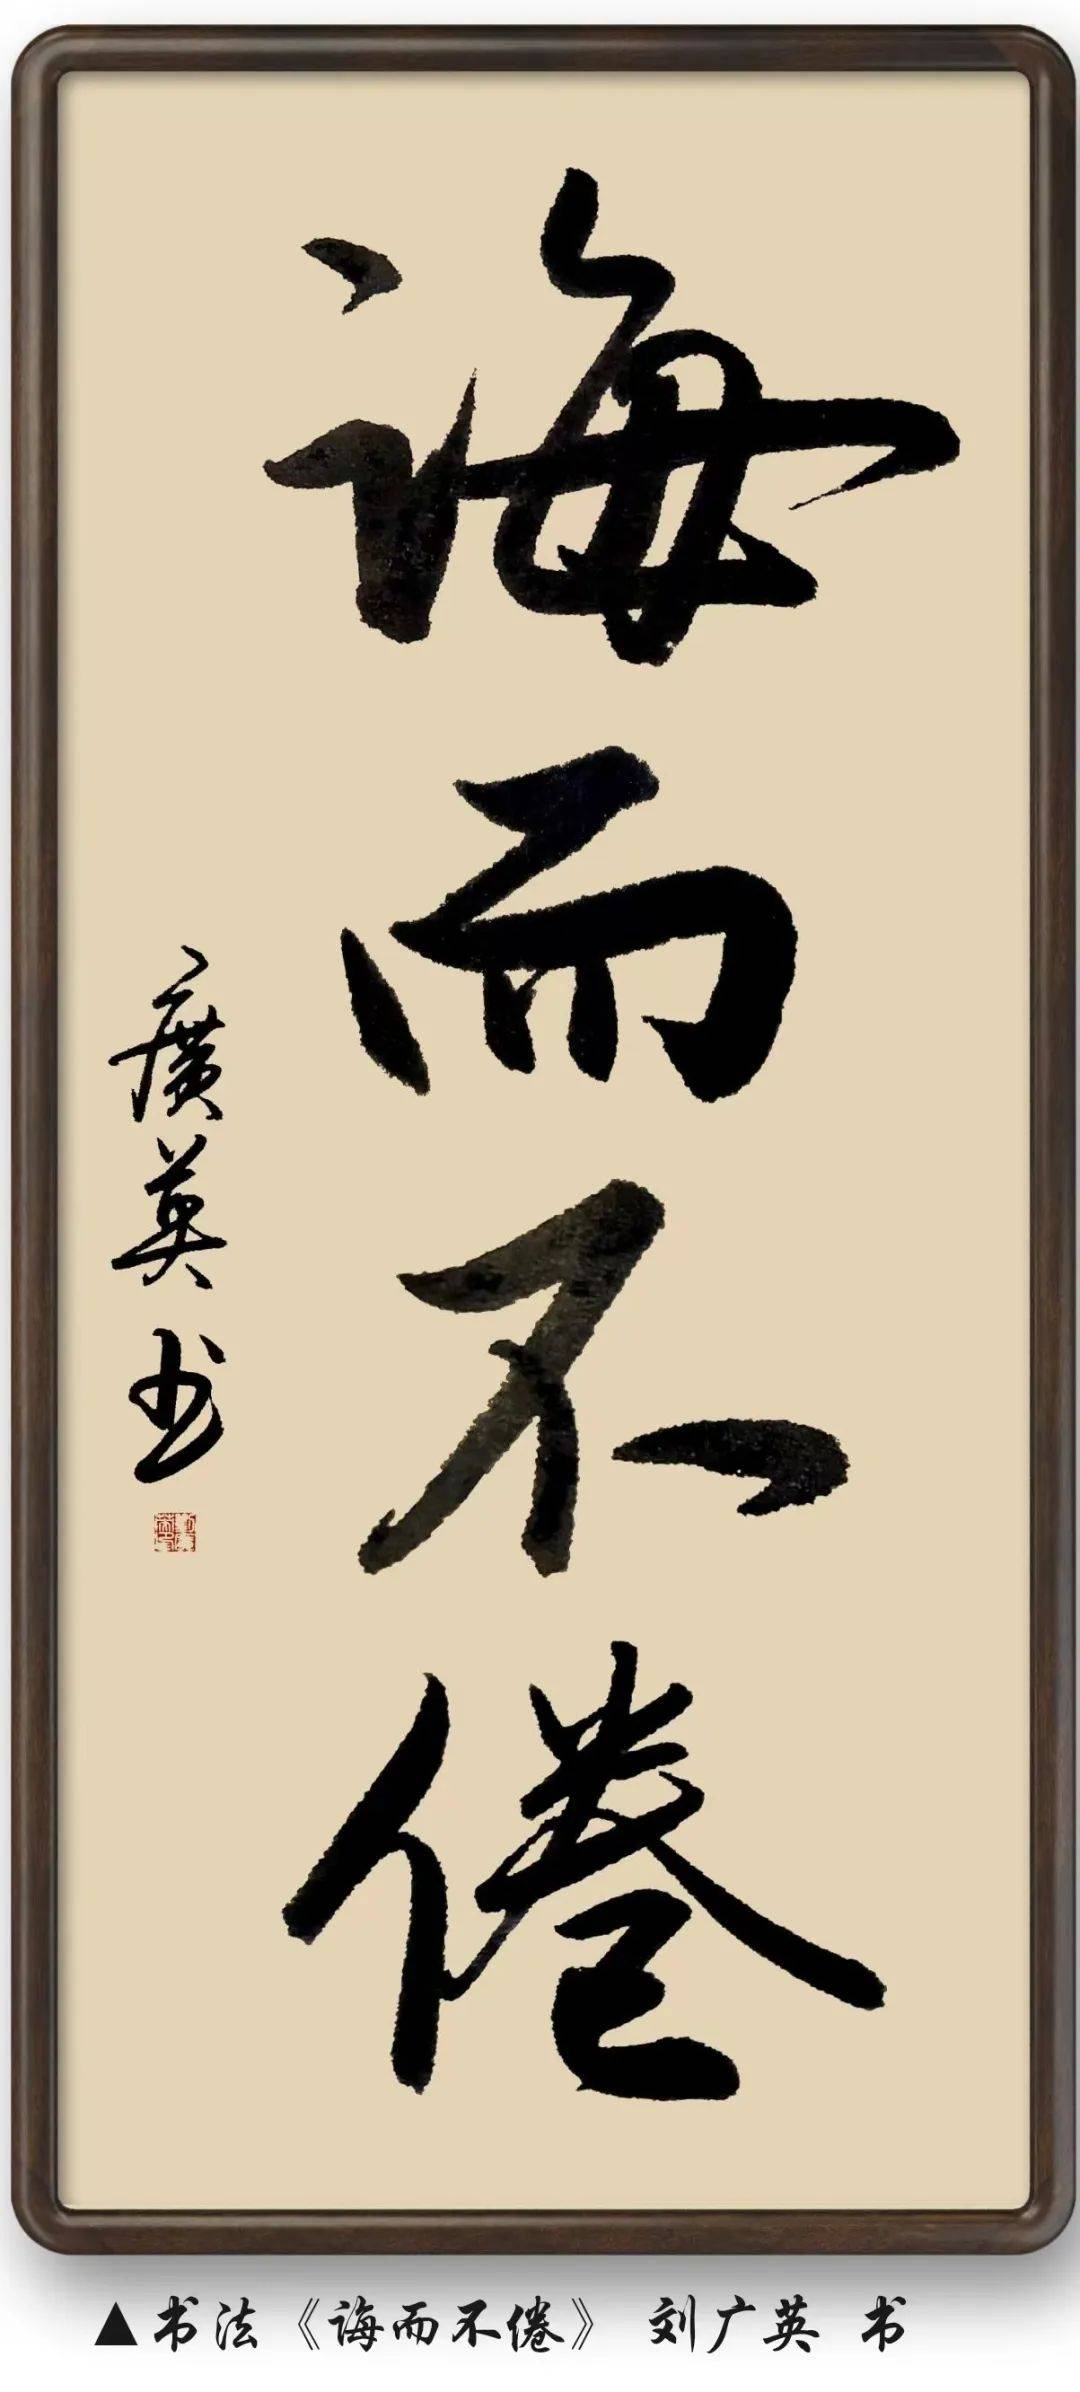 诲而不倦
廣英书
▲书法《诲而不倦》 刘广英 书